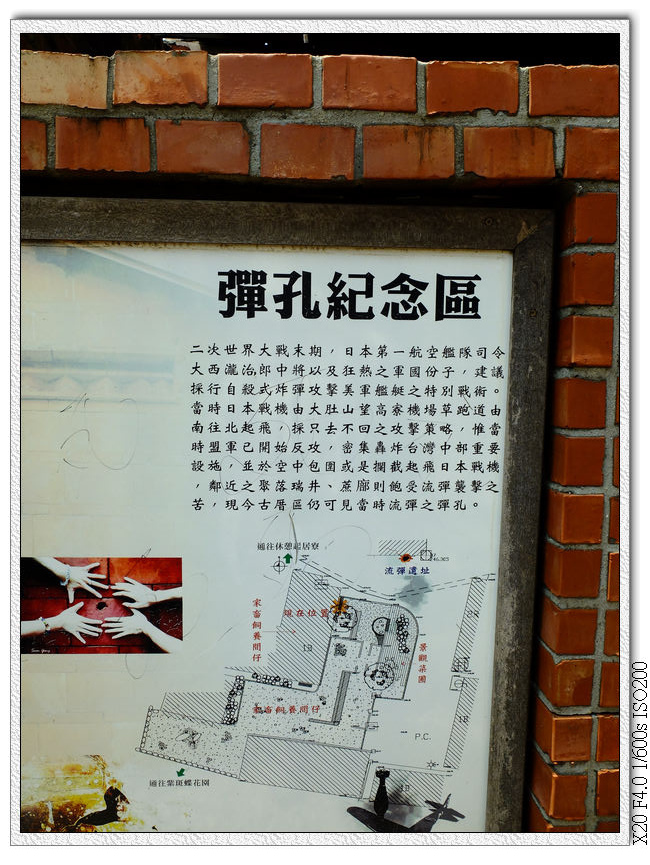 彈孔紀念區
二次世界大戰末期，日本第一航空艦隊，司令
大西瀧治郎中將及狂熱之軍國份子，建議
採行自殺式炸攻擊美軍艦艇之特別戰術。
當時日本戰機由大肚山望高場草跑道由
南往北起飛，採去回之攻擊策略。惟當
時盟軍已開始反攻，密集轟炸台灣中部重要
設施，並於空中攔截日本戰機
鄰近之聚落則飽流彈襲擊之
苦，現今古厝區仍可見當時流彈之彈孔。
通往休憩起居寮
流彈遺址
家畜飼養間仔
現在位置
景觀菜圃
家畜飼養間仔
1B
2R
1B
P.C.
通往紫斑蝶花園
X20 F4.0 1/600s ISO200